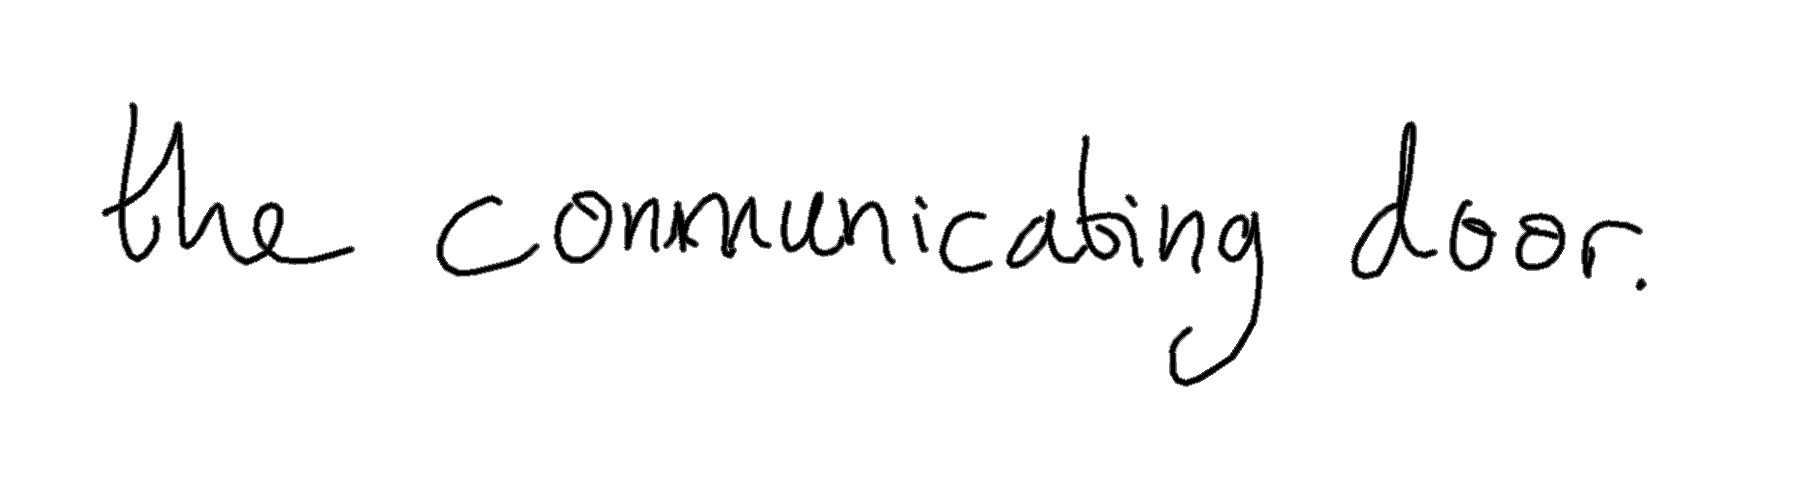 the communicating door.